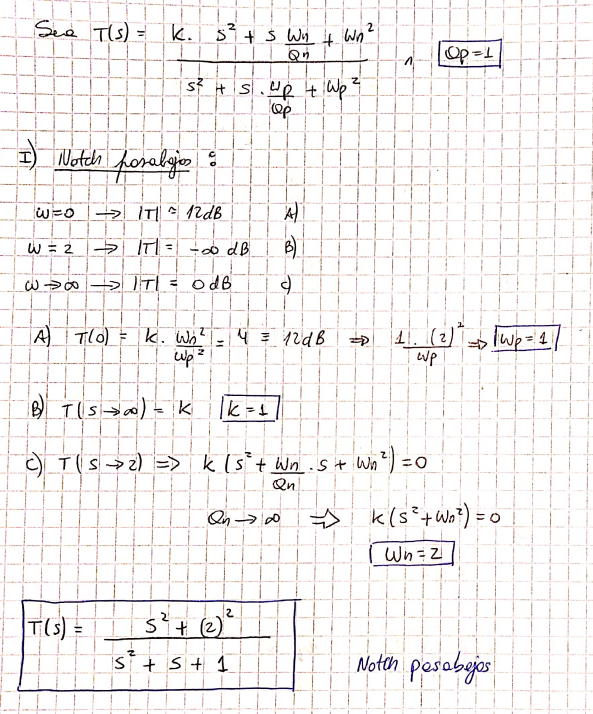 Sea T(s) = k. s² + s Wn/Qn + Wn² / s² + s . Wp/Qp + Wp² ∧ Qp=1
I) Notch pasabajos :
w=0 → |T| = 12dB A)
w = 2 → |T| = -∞ dB B)
w→∞ → |T| = 0dB c)
A) T(0) = k. Wn²/Wp² = 4 ≡ 12dB ⇒ 1. (2)²/Wp ⇒ Wp=1
B) T(s→∞) = k k=1
C) T(s→2) ⇒ k (s² + Wn/Qn . s + Wn²) = 0
Qn→∞ ⇒ k(s²+Wn²) = 0
Wn = 2
T(s) = s² + (2)² / s² + s + 1
Notch pasabajos